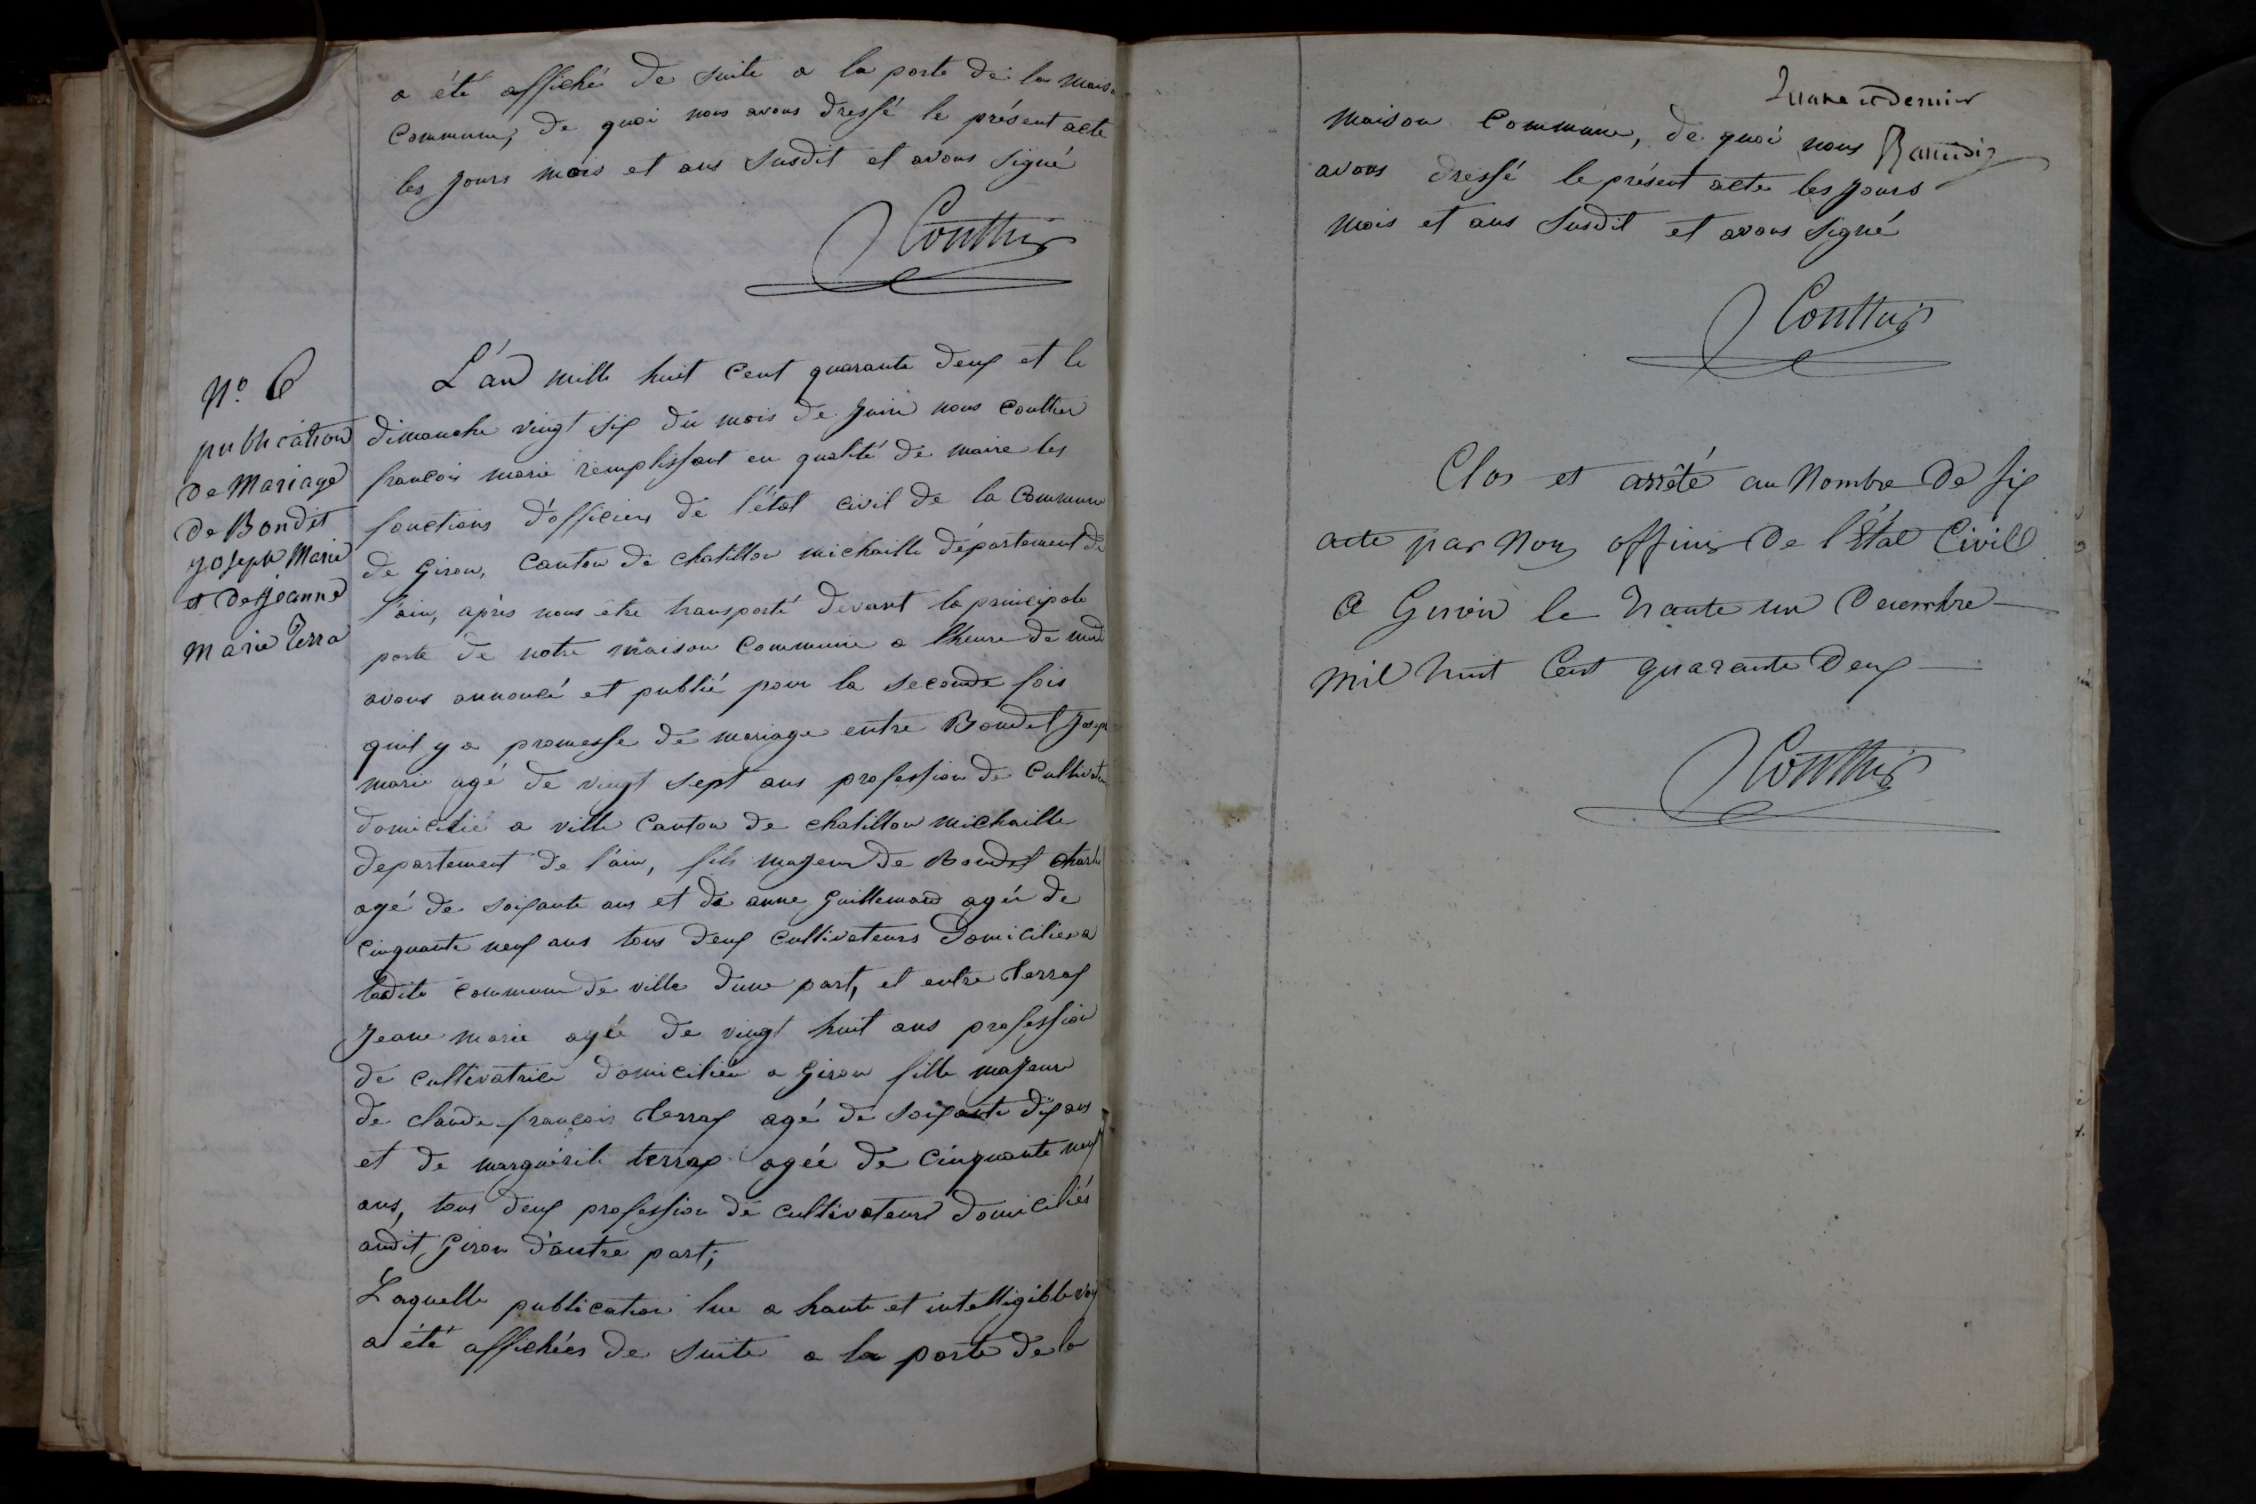 a été affiché de suite a la porte de la mais
commune, de quoi nous avons dressé le présent acte
les jours mois et ans susdit et avons signé
Couthier
N.o 6
publication
de Mariage
de Bondet
joseph Marie
et de jeanne
marie Terra
L'an mille huit cent quarante deux et le
dimanche vingt six du mois de juin nous Couthier
françois marie remplissant en qualité de maire les
fonctions d'officiers de l'état civil de la commune
de Giron, Canton de chatillon michaille département de
l'ain, après nous etre transporté devant la principale
porte de notre maison commune a l'heure de midi
avons annoncé et publié pour la seconde fois
quil y a promesse de mariage entre Bondet Josep
marie agé de vingt sept ans profession de Cultivateur
domicilié a ville Canton de chatillon michaille
departement de l'ain, fils majeur de Bondet charle
agé de soixante ans et de anne Guillemard agée de
cinquante neuf ans tous deux cultivateurs domiciliés a
ladite commune de ville dune part, et entre terrax
Jeane marie agée de vingt huit ans profession
de cultivatrice domiciliée a Giron fille majeure
de claude françois terrax agé de soixante dix ans
et de marguerite terrax agée de cinquante neuf
ans, tous deux profession de cultivateurs domiciliés
audit Giron d'autre part;
Laquelle publication lue a haute et intelligible voix
a été affichées de suite a la porte de la
et dernier
maison commune, de quoi nous
avons dressé le présent acte les jours
mois et ans susdit et avons signé
Couthier
Clos et arrêté au Nombre de six
acte par Nous officier de l'État Civill
a Giron le trante un Decembre
mil huit Cent quarante deux
Couthier